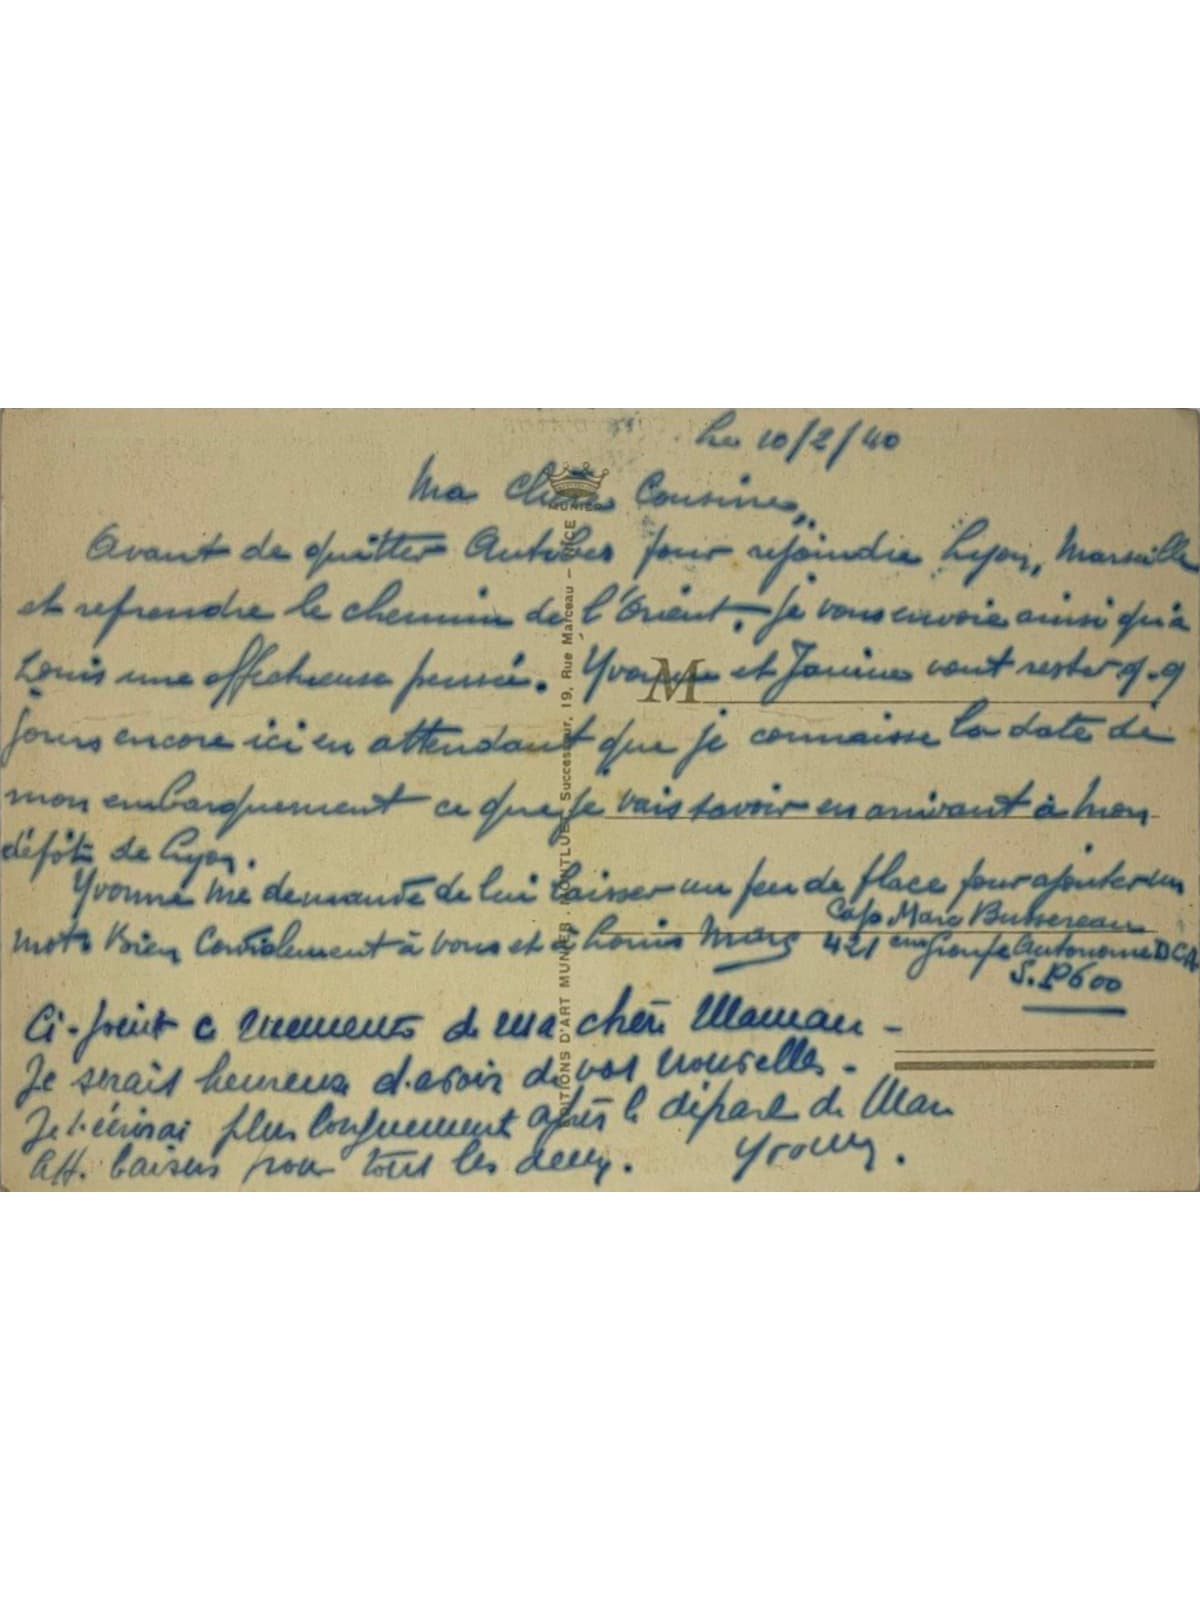 Le 10/2/40
Ma Chère Cousine,
Avant de quitter Antibes pour rejoindre Lyon, Marseille
et reprendre le chemin de l'Orient, je vous envoie ainsi qu'à
Louis une affectueuse pensée. Yvonne et Janine vont rester q.q
jours encore ici en attendant que je connaisse la date de
mon embarquement ce que je vais savoir en arrivant à mon
dépôt de Lyon.
Yvonne me demande de lui laisser un peu de place pour ajouter un
mot. Bien Cordialement à vous et à Louis Marc
Cap Marc Bussereau
421 eme Groupe Autonome D C A
S.P 600
Ci-joint de ma chère Maman -
Je serais heureuse d'avoir de vos nouvelles -
Je t'écrirai plus longuement après le départ de Marc
Aff. baisers pour tous les deux. Yvonne.
MUNIER
M
EDITIONS D'ART MUNIER - MONTLUET, Successeur, 19, Rue Marceau - NICE